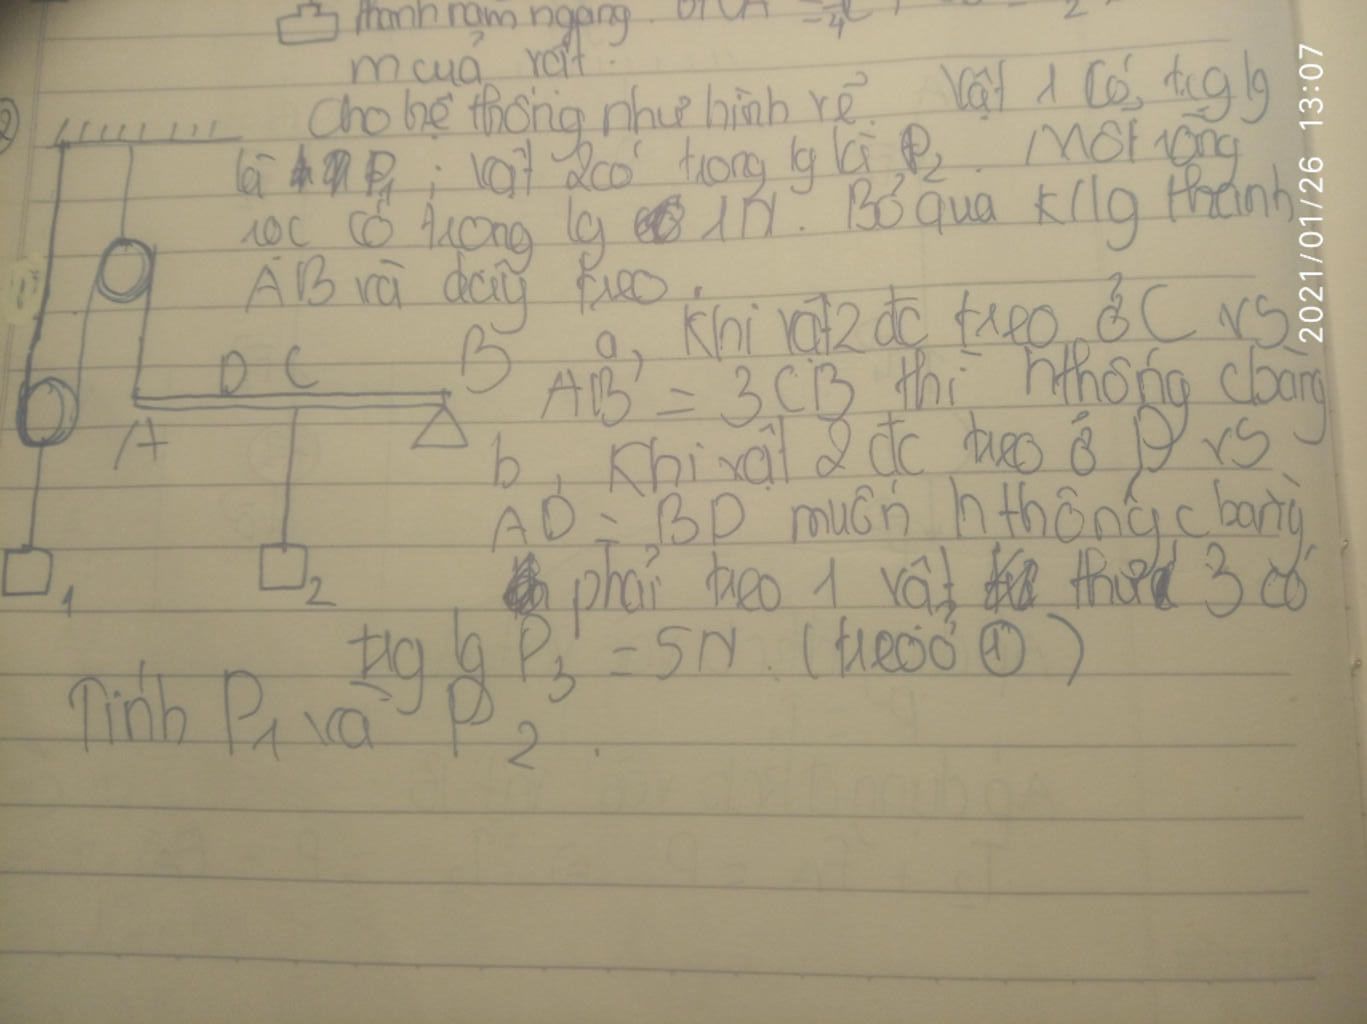 thanh nằm ngang.
m của vật.
2
Cho hệ thống như hình vẽ. Vật 1 có tlg lg
là P1; vật 2 có trong lg là P2. Mỗi ròng
rọc có trọng lg 1N. Bỏ qua k/lg thanh
AB và dây treo.
a, Khi vật 2 đc treo ở C vs
AB = 3CB thì hthống cbằng
b, Khi vật 2 đc treo ở D vs
AD = BD muốn hthống cbằng
phải treo 1 vật thứ 3 có
tlg lg P3 = 5N. (treo ở 1)
Tính P1 và P2.
D C B
A
1 2
2021/01/26 13:07